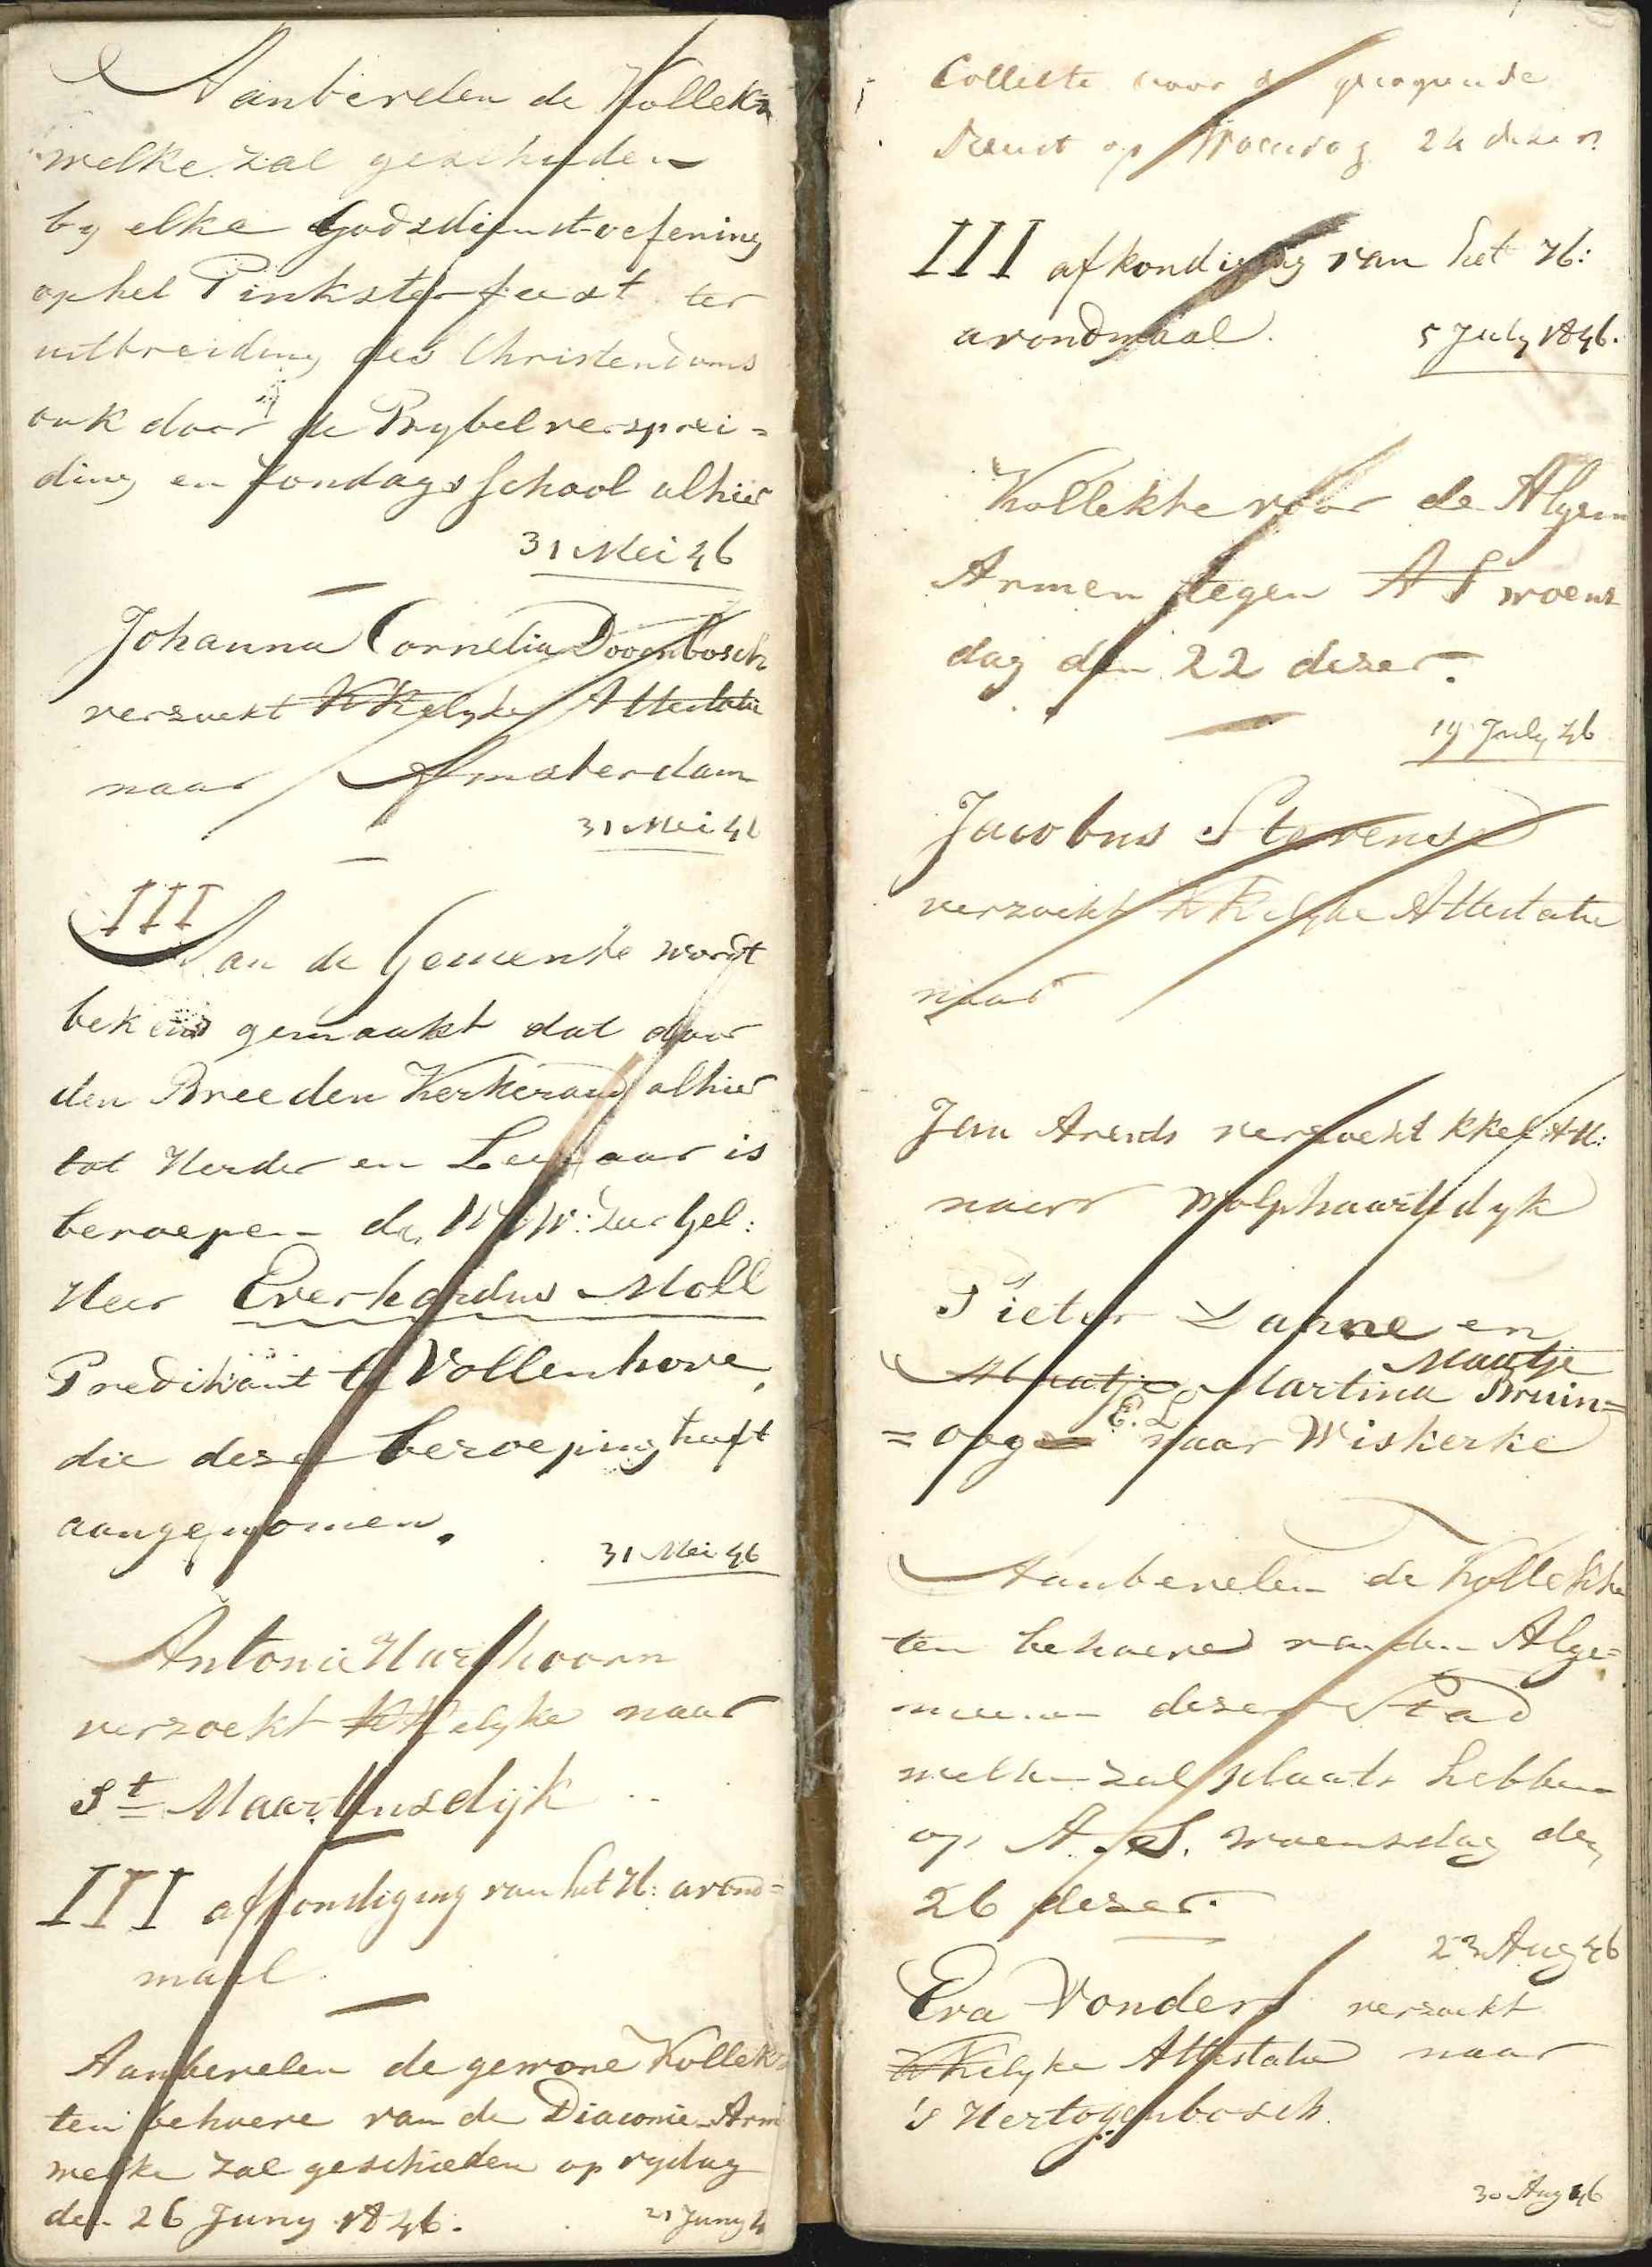 Aanbevelen de Kollek=
welke zal geschieden
by elke Godsdienstoefening
op het Pinksterfeest ter
uitbreiding des Christendoms
ook door de Bybelversprei=
ding en Zondagsschool alhier
31 Mei 46
Johanna Cornelia Doorenbosch
verzoekt KKelyke Attestatie
naar Amsterdam
31 Mei 46
III
Aan de Gemeente wordt
bekend gemaakt dat door
den Breeden Kerkeraad alhier
tot Herder en Leeraar is
beroepen de W: Zeer Gel:
Heer Everhardus Moll
Predikant te Vollenhove,
die deze beroeping heeft
aangenomen.
31 Mei 46
Antonie Harthoorn
verzoekt KKelyke naar
St Maartensdijk
III afkondiging van het H: avond=
maal
Aanbevelen de gewone Kollek=
ten behoeve van de Diaconie Arm
welke zal geschieden op vydag
den 26 Juny 1846.
21 Juny 4
Collecte voor de
dienst op Woensdag 24 dezer
III afkondiging van het H:
avondmaal.
5 July 1846.
Kollekte voor de Algem
Armen tegen A S woens
dag den 22 dezer.
19 July 46
Jacobus Stevense
verzoekt KKelyke Attestatie
naar
Jan Arends verzoekt KKel Att:
naar Wolphaartsdyk
Pieter Danne en
Maatje
Maatje Martina Bruin=
=oog E. L naar Wiskerke
Aanbevelen de Kollekte
ten behoeve van den Alge=
meenen dezer Stad
welke zal plaats hebben
op A. S. woensdag den
26 dezer.
23 Aug 46
Eva Vonder verzoekt
KKelyke Attestatie naar
's Hertogenbosch.
30 Aug 46